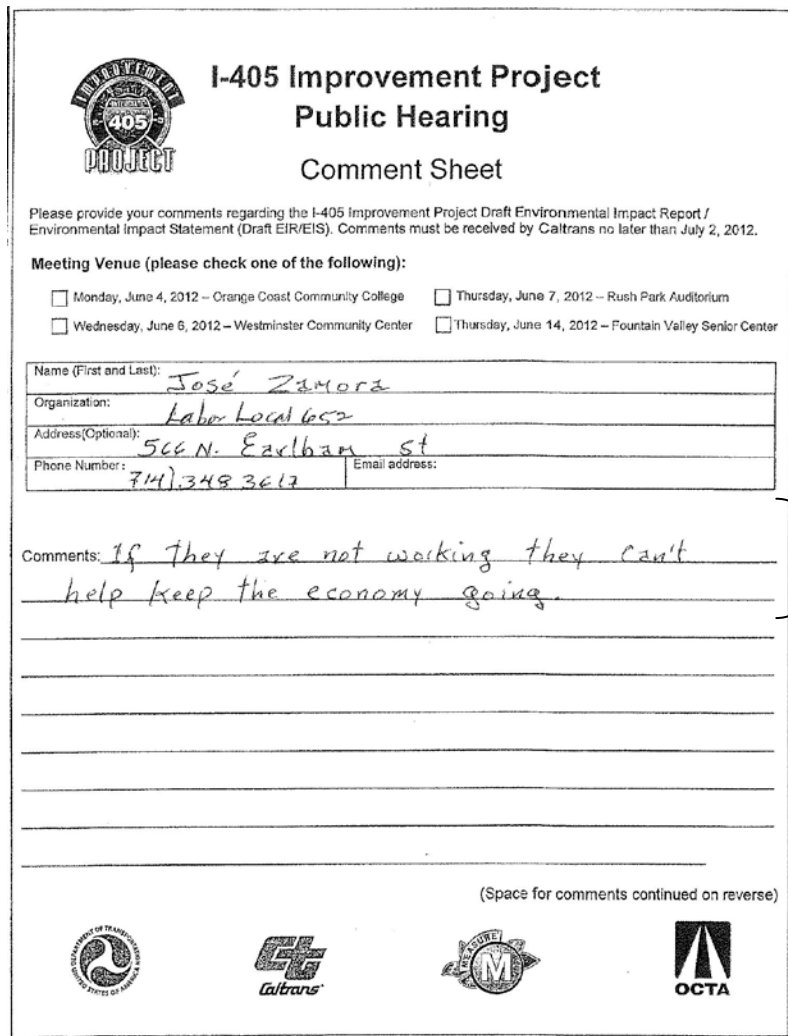 IMPROVEMENT
405
PROJECT
I-405 Improvement Project
Public Hearing
Comment Sheet
Please provide your comments regarding the I-405 Improvement Project Draft Environmental Impact Report /
Environmental Impact Statement (Draft EIR/EIS). Comments must be received by Caltrans no later than July 2, 2012.
Meeting Venue (please check one of the following):
Monday, June 4, 2012 – Orange Coast Community College
Thursday, June 7, 2012 – Rush Park Auditorium
Wednesday, June 6, 2012 – Westminster Community Center
Thursday, June 14, 2012 – Fountain Valley Senior Center
Name (First and Last): José Zamora
Organization: Labor Local 652
Address(Optional): 566 N. Earlham St
Phone Number: 714) 348 3617
Email address:
Comments: If they are not working they can't
help keep the economy going.
(Space for comments continued on reverse)
DEPARTMENT OF TRANSPORTATION
UNITED STATES OF AMERICA
Caltrans
MEASURE
M
OCTA